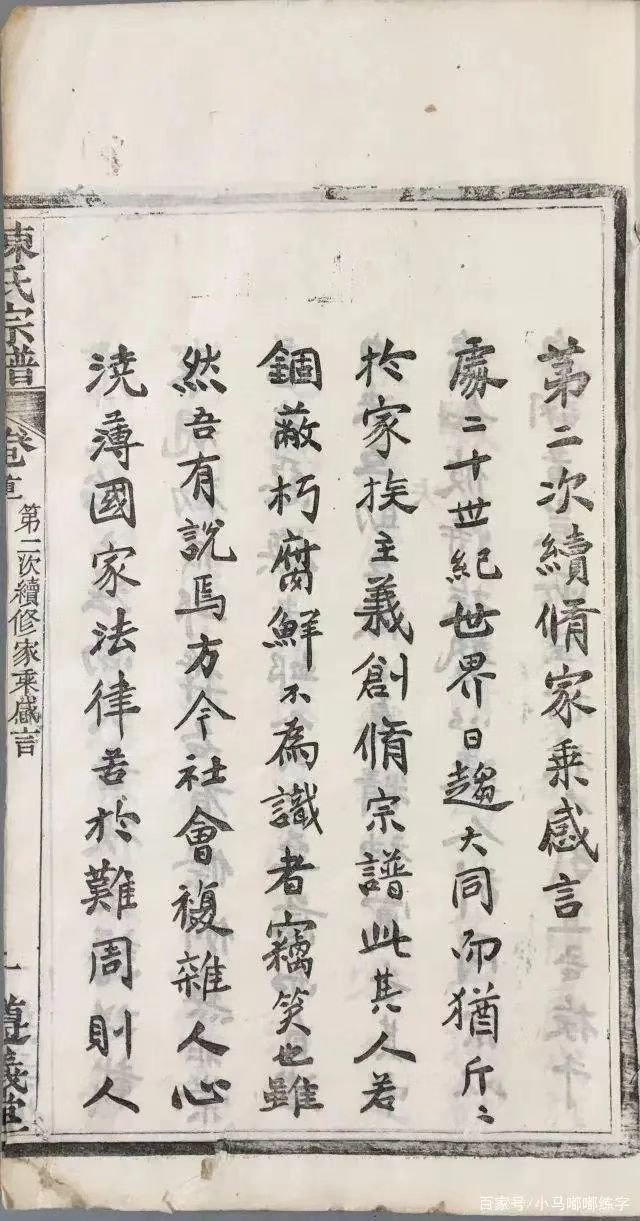 第二次續脩家乘感言
處二十世紀世界日趨大同而猶斤〻
於家族主義創脩宗譜此其人若
錮蔽朽腐鮮不為識者竊笑也雖
然吾有說焉方今社會複雜人心
澆薄國家法律苦於難周則人
陳氏宗譜
卷首
第二次續修家乘感言
一
遵義堂
百家号/小马嘟嘟练字